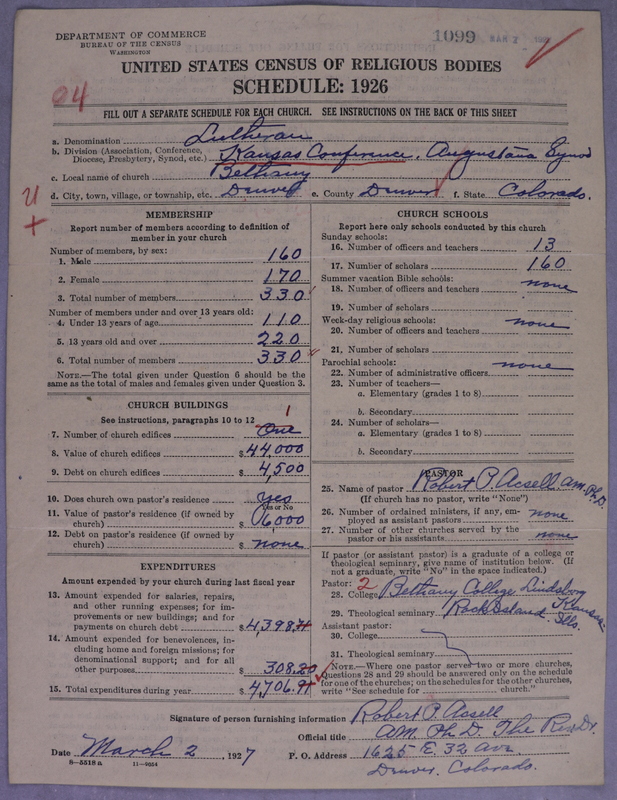 DEPARTMENT OF COMMERCE
BUREAU OF THE CENSUS
WASHINGTON
1099 MAR 7
UNITED STATES CENSUS OF RELIGIOUS BODIES
SCHEDULE: 1926
04
FILL OUT A SEPARATE SCHEDULE FOR EACH CHURCH. SEE INSTRUCTIONS ON THE BACK OF THIS SHEET
a. Denomination Lutheran
b. Division (Association, Conference, Diocese, Presbytery, Synod, etc.) Kansas Conference. Augustana Synod
c. Local name of church Bethany
d. City, town, village, or township, etc. Denver e. County Denver f. State Colorado.
MEMBERSHIP
Report number of members according to definition of
member in your church
Number of members, by sex:
1. Male 160
2. Female 170
3. Total number of members 330
Number of members under and over 13 years old:
4. Under 13 years of age 110
5. 13 years old and over 220
6. Total number of members 330
NOTE.—The total given under Question 6 should be
same as the total of males and females given under Question 3.
CHURCH BUILDINGS
See instructions, paragraphs 10 to 12
1
7. Number of church edifices One
8. Value of church edifices $ 44,000
9. Debt on church edifices $ 4,500
10. Does church own pastor's residence yes
Yes or No
11. Value of pastor's residence (if owned by
church) $ 6,000
12. Debt on pastor's residence (if owned by
church) $ none
EXPENDITURES
Amount expended by your church during last fiscal year
13. Amount expended for salaries, repairs,
and other running expenses; for im-
provements or new buildings; and for
payments on church debt $ 4,398.71
14. Amount expended for benevolences, in-
cluding home and foreign missions; for
denominational support; and for all
other purposes $ 308.20
15. Total expenditures during year $ 4,706.91
CHURCH SCHOOLS
Report here only schools conducted by this church
Sunday schools:
16. Number of officers and teachers 13
17. Number of scholars 160
Summer vacation Bible schools:
18. Number of officers and teachers none
19. Number of scholars
Week-day religious schools:
20. Number of officers and teachers none
21. Number of scholars
Parochial schools:
22. Number of administrative officers none
23. Number of teachers—
a. Elementary (grades 1 to 8)
b. Secondary
24. Number of scholars—
a. Elementary (grades 1 to 8)
b. Secondary
PASTOR
25. Name of pastor Robert P. Acsell AM. Ph. D.
(If church has no pastor, write "None")
26. Number of ordained ministers, if any, em-
ployed as assistant pastors none
27. Number of other churches served by the
pastor or his assistants none
If pastor (or assistant pastor) is a graduate of a college or
theological seminary, give name of institution below. (If
not a graduate, write "No" in the space indicated.)
Pastor: 2
28. College Bethany College Lindsborg Kansas
29. Theological seminary Rock Island Ills.
Assistant pastor:
30. College
31. Theological seminary
NOTE.—Where one pastor serves two or more churches,
Questions 28 and 29 should be answered only on the schedule
for one of the churches; on the schedules for the other churches,
write "See schedule for church."
Signature of person furnishing information Robert P. Acsell
Official title AM. Ph. D. The Rev. Dr.
Date March 2, 1927 P. O. Address 1625 E 32 Ave.
Denver. Colorado.
8—5518 a 11—9054